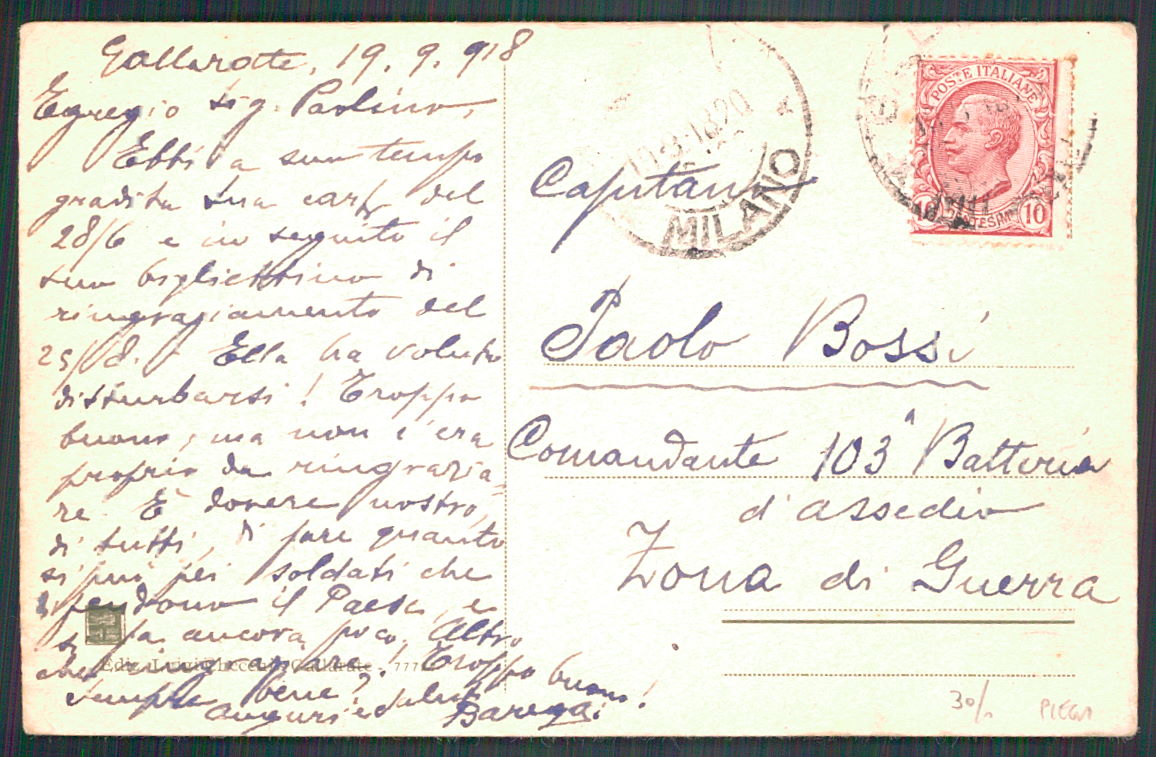 Gallarate, 19.9.918
Egregio Sig. Paolino,
Ebbi a suo tempo
gradita sua cart. del
28/6 e in seguito il
suo bigliettino di
ringraziamento del
25/8. Ella ha voluto
disturbarsi! Troppo
buono, ma non c'era
proprio da ringrazia-
re. È dovere nostro,
di tutti, di fare quanto
si può pei soldati che
difendono il Paese, e
si fa ancora poco. Altro
che ringraziare! Troppo buono!
Sempre bene?
auguri e saluti
Edit. Luigi Checchi, Gallarate - 777
MILANO
POSTE ITALIANE
10 CENTESIMI 10
Capitano
Paolo Bossi
Comandante 103ª Batteria
d'assedio
Zona di Guerra
30/
PIEGA